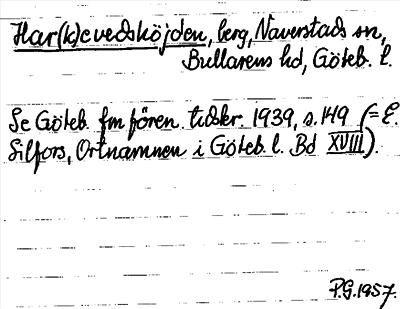 Har(k)evedsköjden, berg, Naverstads sn,
Bullarens hd, Göteb. l.
Se Göteb. fm fören. tidskr. 1939, s. 149 (= E.
Silfors, Ortnamnen i Göteb. l. Bd XVIII).
P.G. 1957.